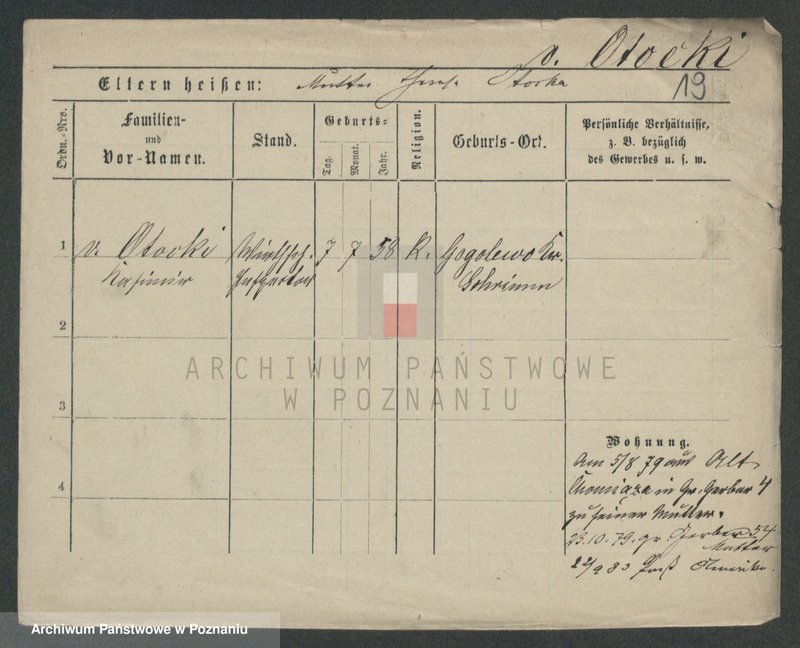 v. Otocki
19
Eltern heißen: Mutter Otocka
Ordn.-Nro.
Familien-
und
Vor-Namen.
Stand.
Geburts-
Tag.
Monat.
Jahr.
Religion.
Geburts-Ort.
Persönliche Verhältnisse,
z. B. bezüglich
des Gewerbes u. s. w.
1 v. Otocki Wirthsch. 7 7 58 K. Gogolewo Kr.
Kasimir Inspector Schrimm
2
ARCHIWUM PAŃSTWOWE
W POZNANIU
3
Wohnung.
Am 5/8 79 aus Alt
in Gr. Gerber 4
4
zu seiner Mutter.
23.10.79. gr Gerber 54
Mutter
83 Amerika.
Archiwum Państwowe w Poznaniu